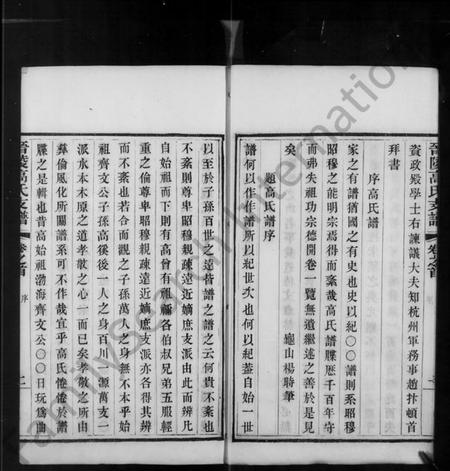 資政殿學士右諫議大夫知杭州軍務事趙抃頓首
拜書
序高氏譜
家之有譜猶國之有史也史以紀〇〇譜則系昭穆
昭穆之能明宗焉得而紊哉高氏譜牒歷千百年守
而弗失祖功宗德開卷一覽無遺繼述之善於是見
矣
龜山楊時筆
題高氏譜序
譜何以作作以紀世次也何以紀蓋自始一世
晉陵高氏支譜
卷之首
序
以至於子孫百世之遠皆譜之譜之云何貴不紊也
不紊則尊卑昭穆親疎遠近嫡庶支派由此而辨凡
自始祖而下則有高會有祖禰各伯叔兄弟五服輕
重之倫尊卑昭穆親疎遠近嫡庶支派亦各得其辨
而不紊也若合而觀之子孫萬亿之身無不本乎始
祖齊文公子孫高徯後一人之身百川一源萬支一
派水木本原之道孝敬之心一而已矣孝敬之所由
彝倫風化所關譜系可不作哉宜乎高氏惓惓於譜
牒之是輯也昔高始祖渤海齊文公〇〇日玩爲曲
晉陵高氏支譜
卷之首
序
二
FamilySearch International